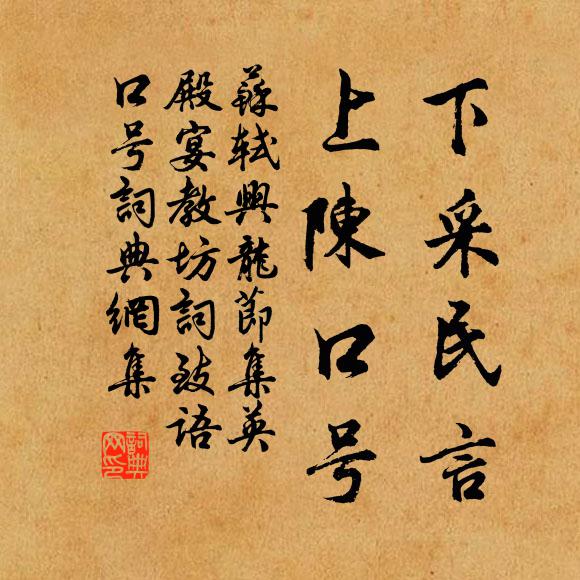 下采民言
上陳口号
蘇軾興龍節集英
殿宴教坊詞致語
口号詞典網集
詞典网印